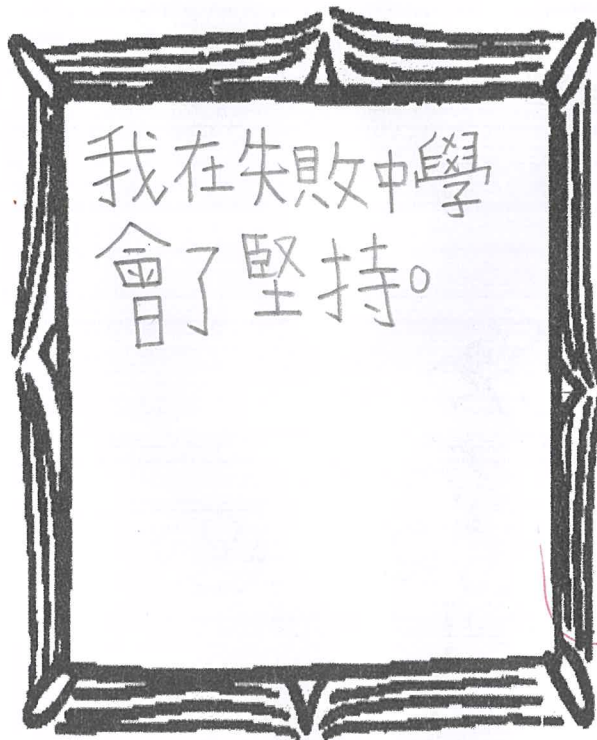 我在失敗中學
會了堅持。